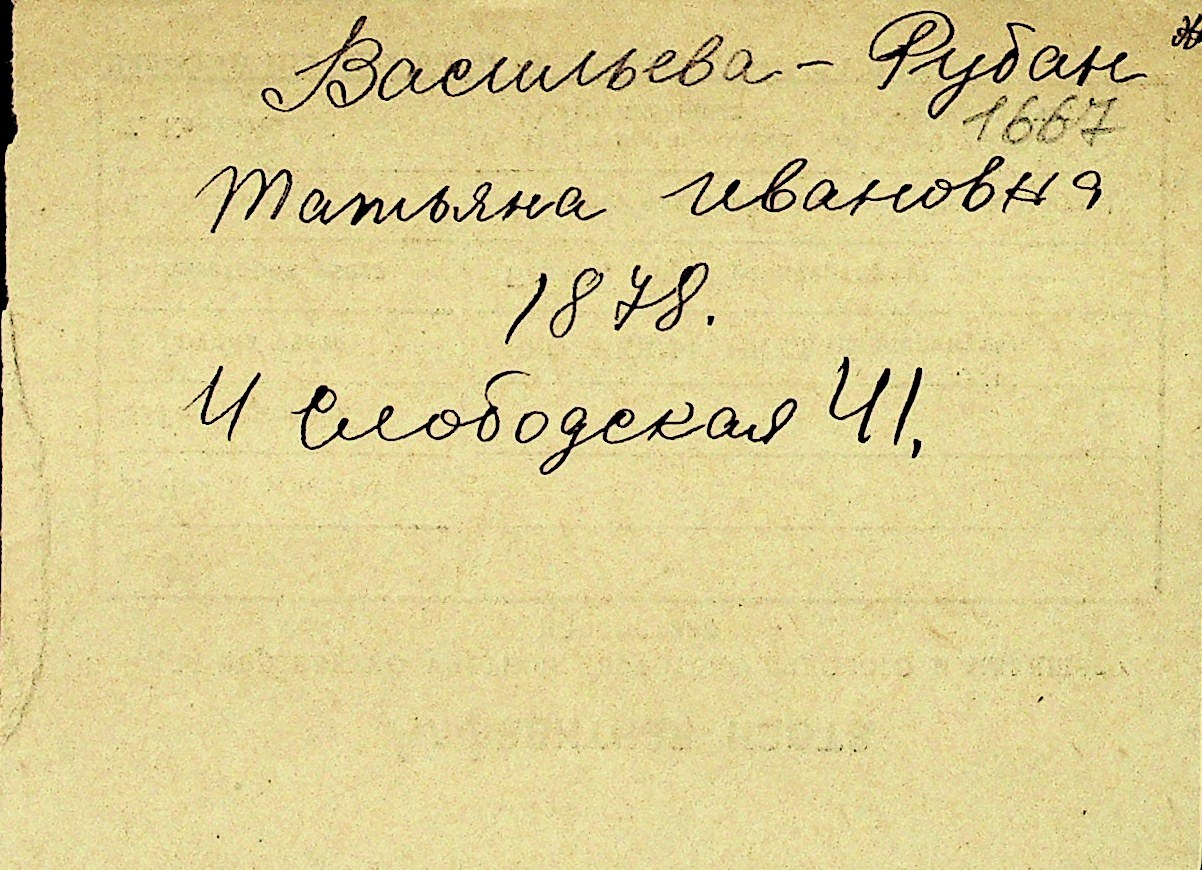 Васильева - Рубан
1667
Татьяна Ивановна
1878.
4 Слободская 41.